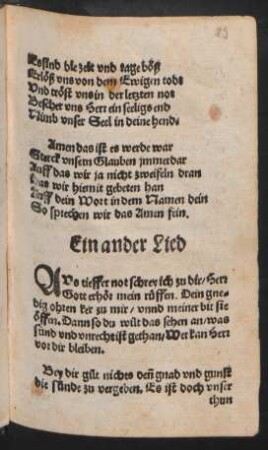 Es sind die zeit vnd tage böß
Erlöß vns von dem Ewigen todt
Vnd tröst vns in der letzten not
Bescher vns Herr ein seeligs end
Nimb vnser Seel in deine hend.
Amen das ist es werde war
Sterck vnsern Glauben jmmerdar
Auff das wir ja nicht zweifeln dran
Das wir hiemit gebeten han
Auff dein Wort in dem Namen dein
So sprechen wir das Amen fein.
Ein ander Lied
AVs tieffer not schrey ich zu dir/Herr
Gott erhör mein rüffen. Dein gne-
dig ohren ker zu mir/vnnd meiner bit sie
öffen. Dann so du wilt das sehen an/was
sünd vnd vnrecht ist gethan/Wer kan Herr
vor dir bleiben.
Bey dir gilt nichts deñ gnad vnd gunst
die sünde zu vergeben, Es ist doch vnser
thun